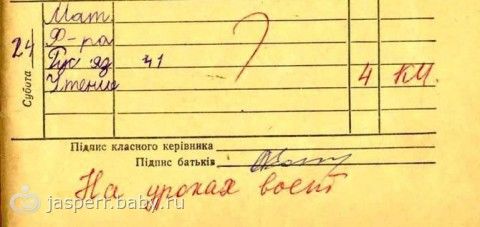 Мат.
Ф-ра
24
Рус яз 41
Субота
Чтение 4 КМ.
Підпис класного керівника
Підпис батьків
На уроках воет
jasperr.baby.ru